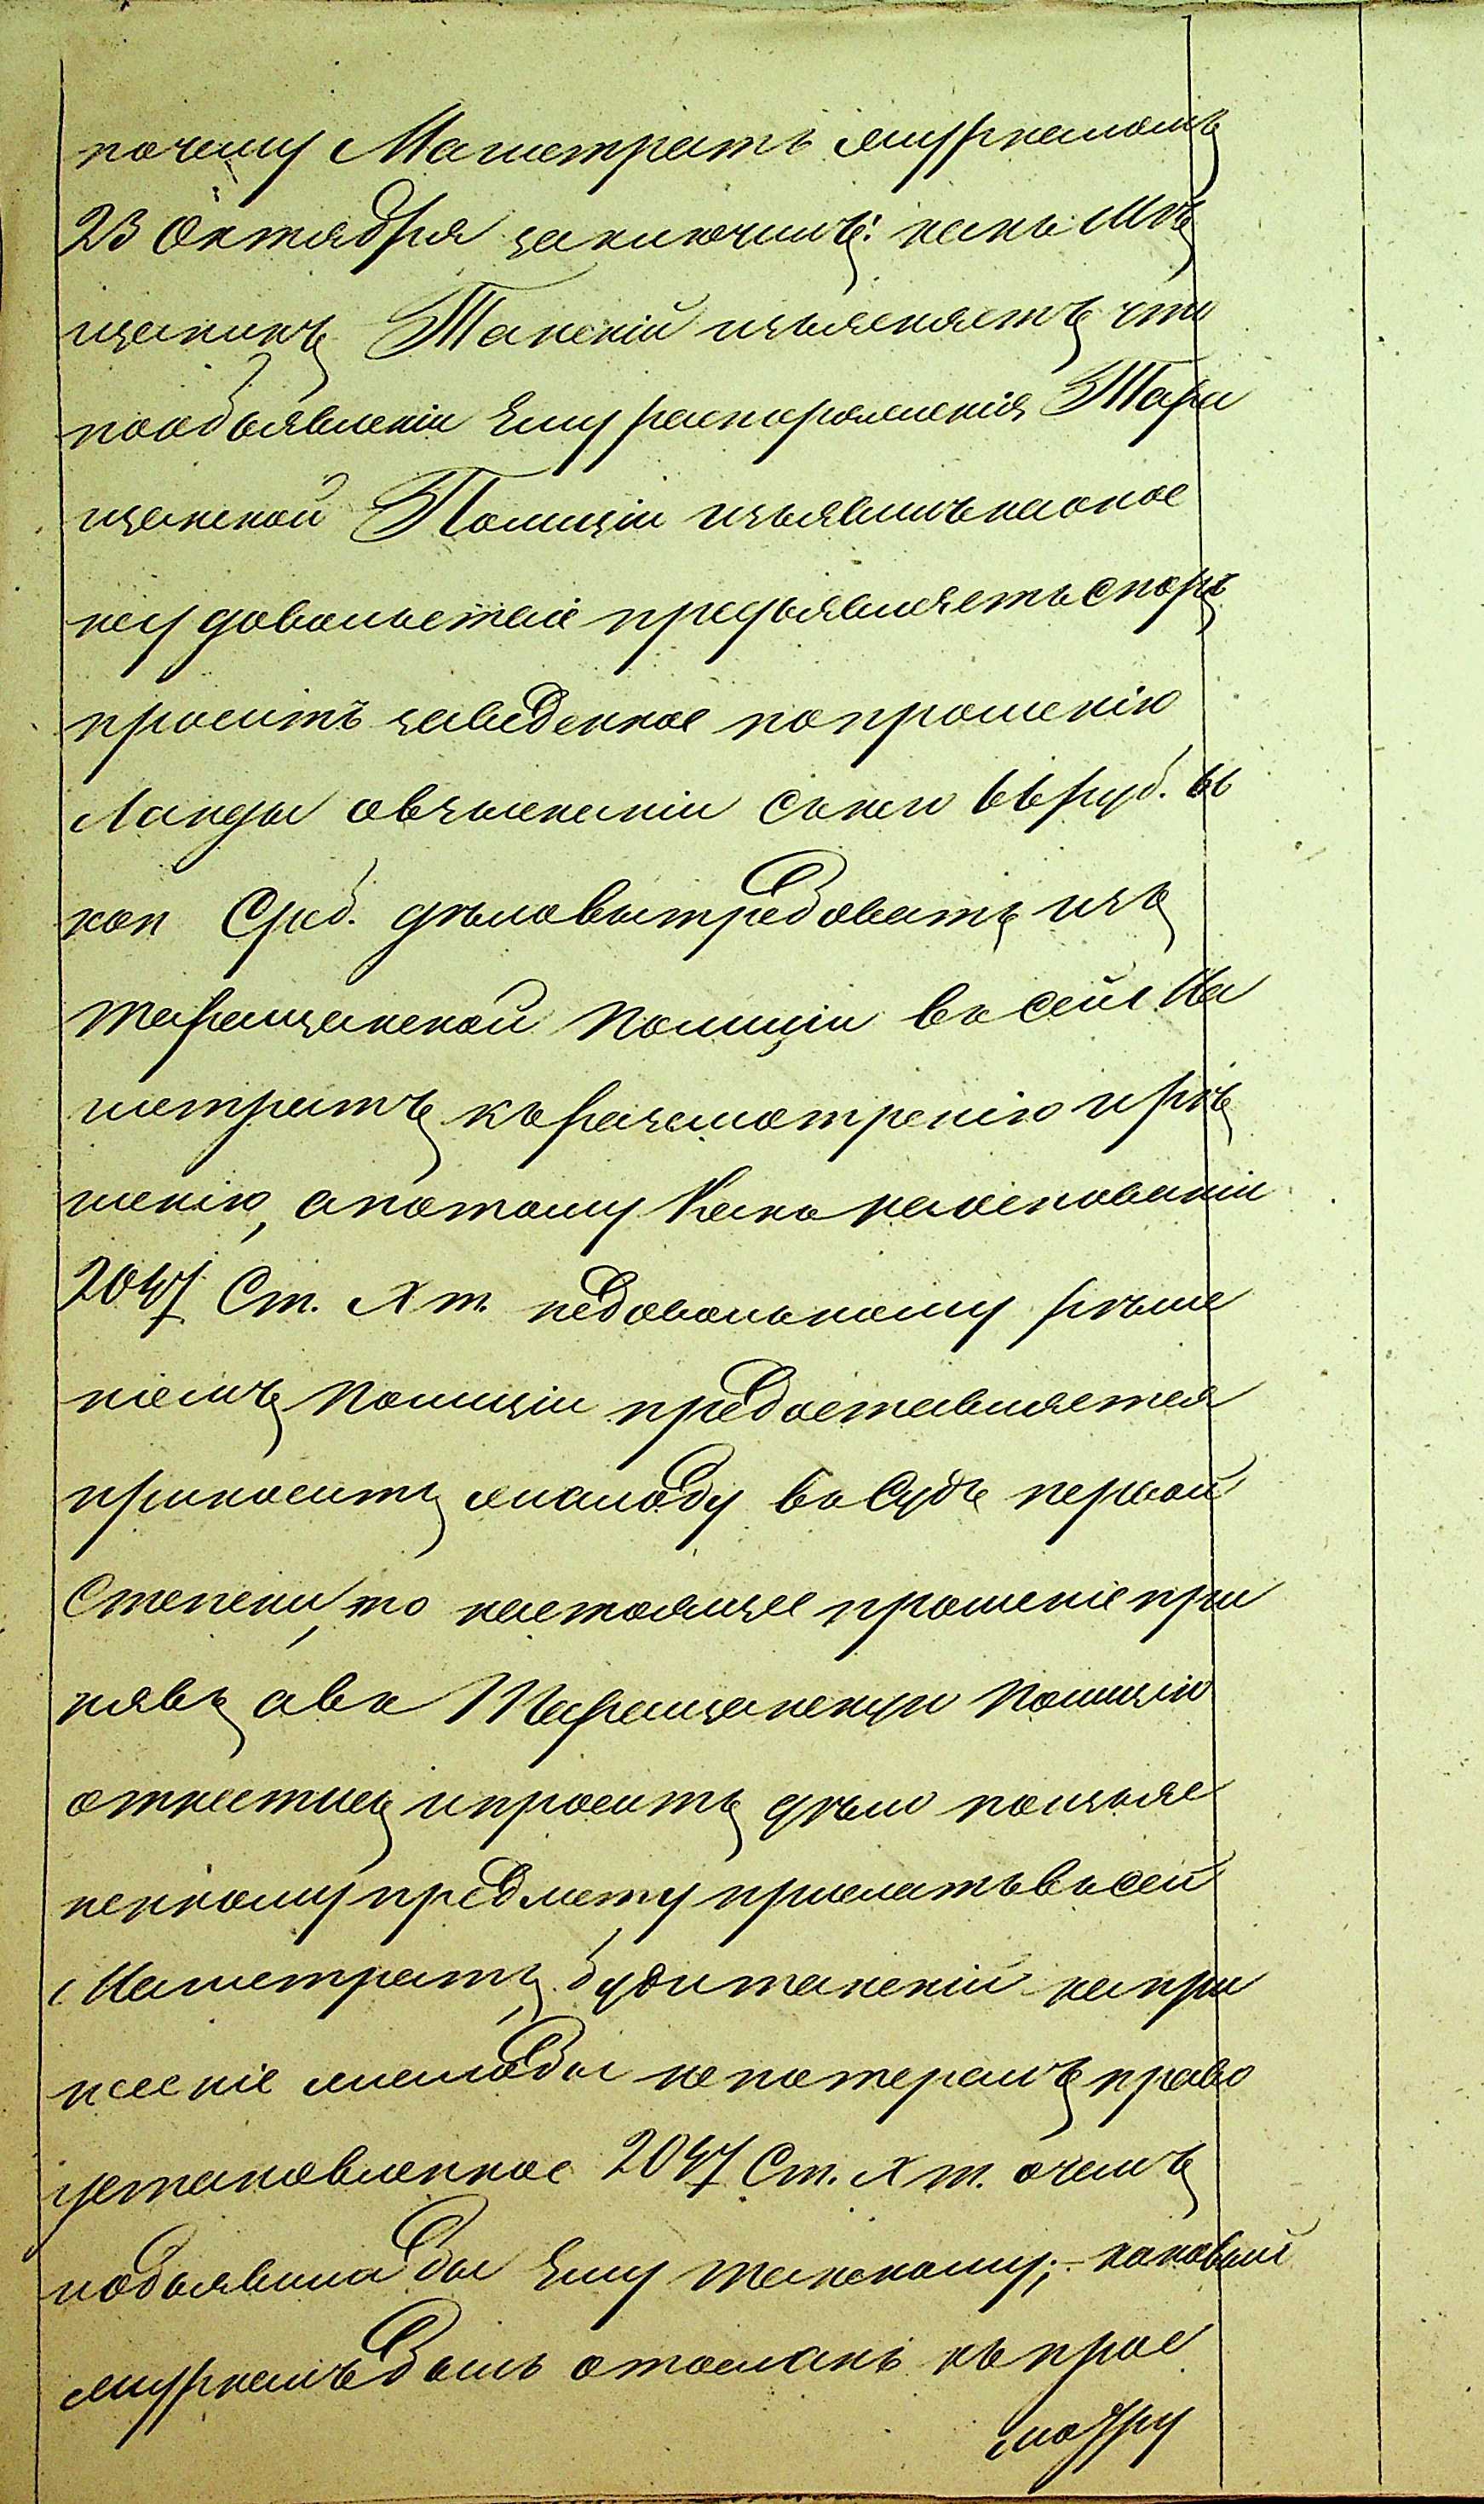 почему Магистратъ журналомъ
23 Октября заключилъ: какъ Мѣ
щанинъ Танскій изъясняетъ что
пообъявленіи Ему распоряженія Тара
щанской Полиціи изъявилъ на оное
неудовольствіе предъявляетъ споръ
проситъ заведенное попрошенію
Ланды овзысканіи снего 66 руб. 66
коп Сереб. дѣло вытребовать изъ
таращанской Полиціи въ сей Ма
гистратъ къ разсмотренію и рѣ
шенію, апотому Какъ наоснованіи
2047 Ст. X т. недовольному рѣше
ніемъ Полиціи предоставляется
приносить жалобу въ Судъ первой
Степени, то настоящее прошеніе при
нявъ авъ Таращанскую Полицію
отнестись ипросить дѣло поизъяс
ненному предмету прислать въ сей
Магистратъ, буди танскій напри
несеніе жалобы непотерялъ право
установленное 2047 Ст. X т. очемъ
иобъявила бы Ему танскому; каковый
журналъ былъ отосланъ къ прос
мотру